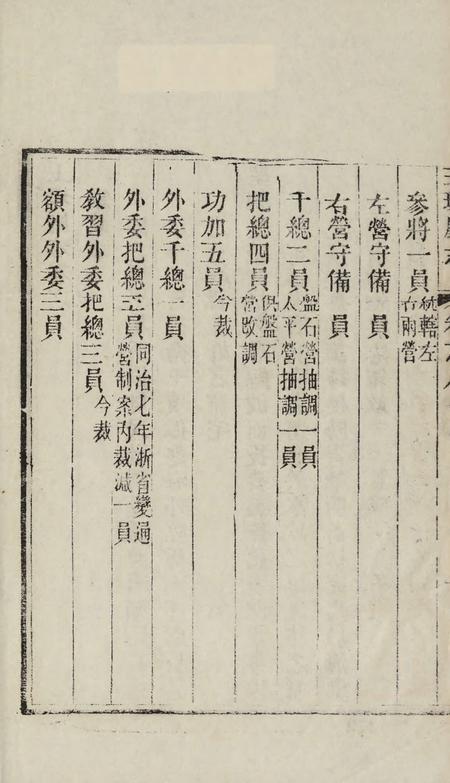 參將一員統轄左右兩營
左營守備一員
右營守備 員
千總二員盤石營抽調一員太平營抽調一員
把總四員俱盤石營改調
功加五員今裁
外委千總一員
外委把總五員同治七年浙省變通營制案內裁減一員
教習外委把總三員今裁
額外外委三員